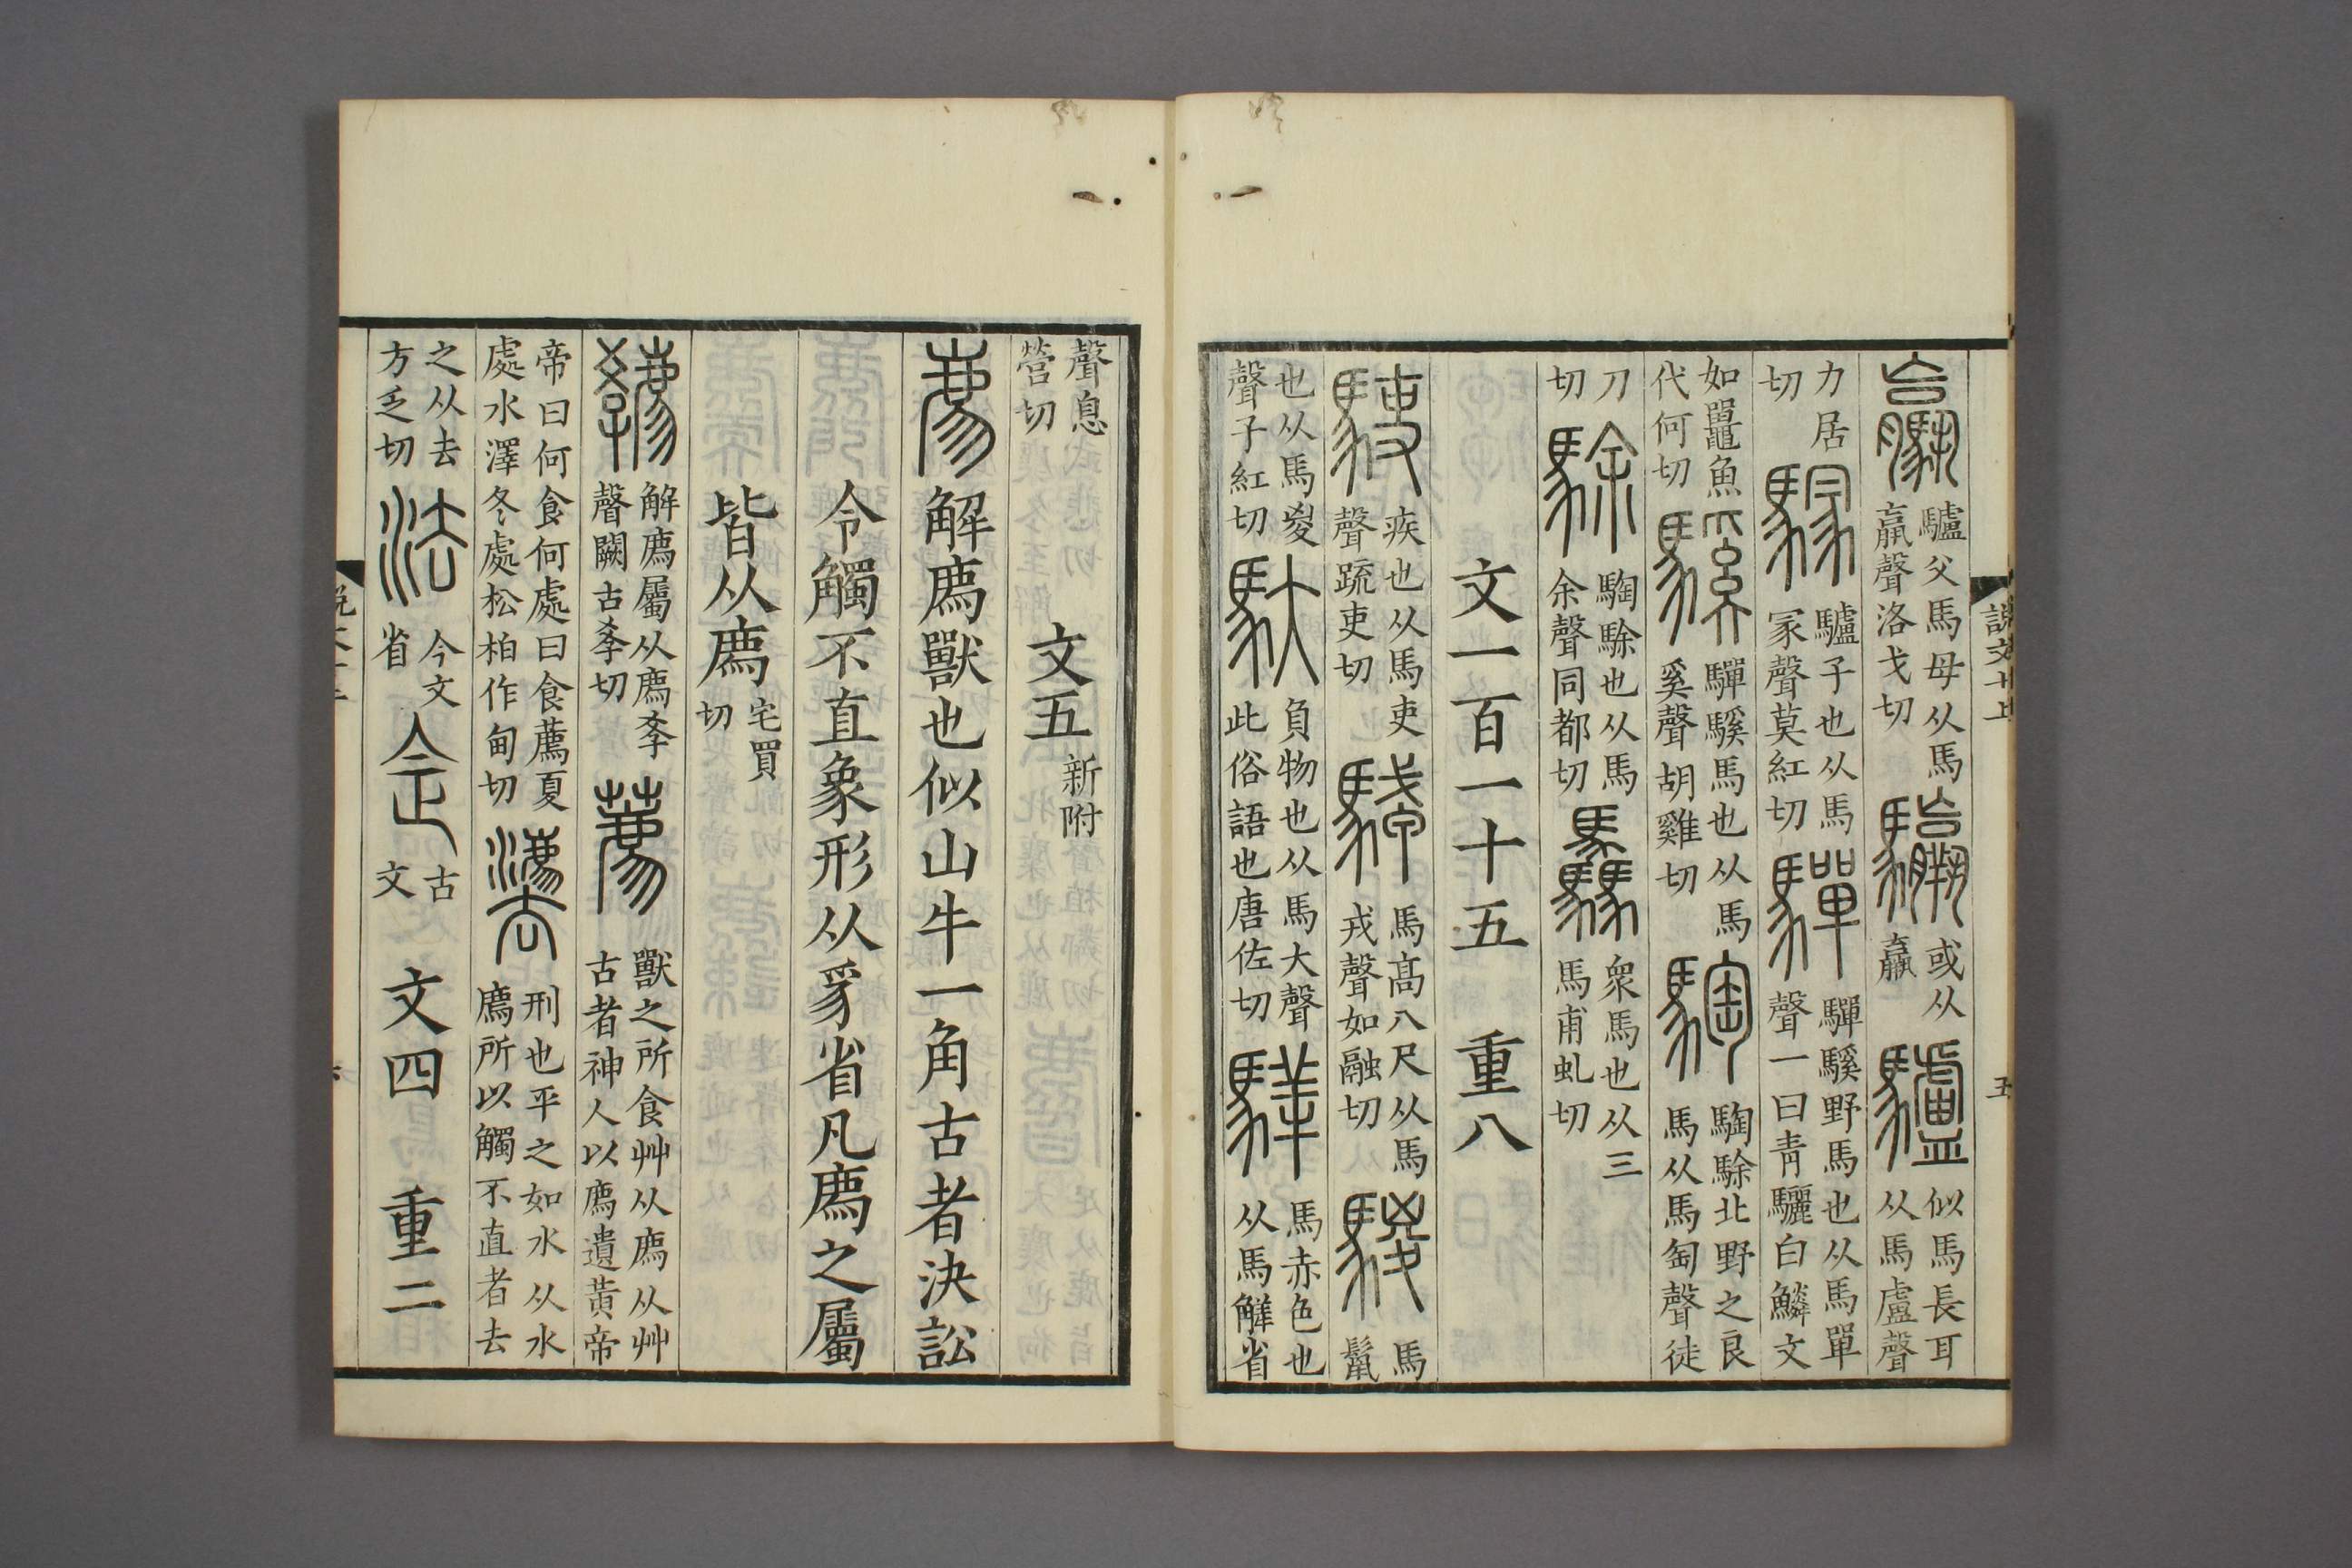 𩦺驢父馬母从馬𦝠聲洛戈切驘或从𦝠驢似馬長耳从馬盧聲
力居切驝驢子也从馬冡聲莫紅切驒驒騱野馬也从馬單聲一曰青驪白鱗文
如鼉魚代何切騱驒騱馬也从馬奚聲胡雞切騊騊駼北野之良馬从馬匋聲徒
刀切駼騊駼也从馬余聲同都切驫衆馬也从三馬甫虬切
文一百一十五 重八
駛疾也从馬吏聲疏吏切駥馬高八尺从馬戎聲如融切騣馬鬣
也从馬㚇聲子紅切馱負物也从馬大聲此俗語也唐佐切騂馬赤色也从馬觲省
說文十上 五
聲息營切 文五新附
廌解廌獸也似山牛一角古者決訟
令觸不直象形从豸省凡廌之屬
皆从廌宅買切
𢊁解廌屬从廌孝聲闕古孝切薦獸之所食艸从廌从艸古者神人以廌遺黃帝
帝曰何食何處曰食薦夏處水澤冬處松柏作甸切灋刑也平之如水从水廌所以觸不直者去
之从去方乏切法今文省佱古文 文四 重二